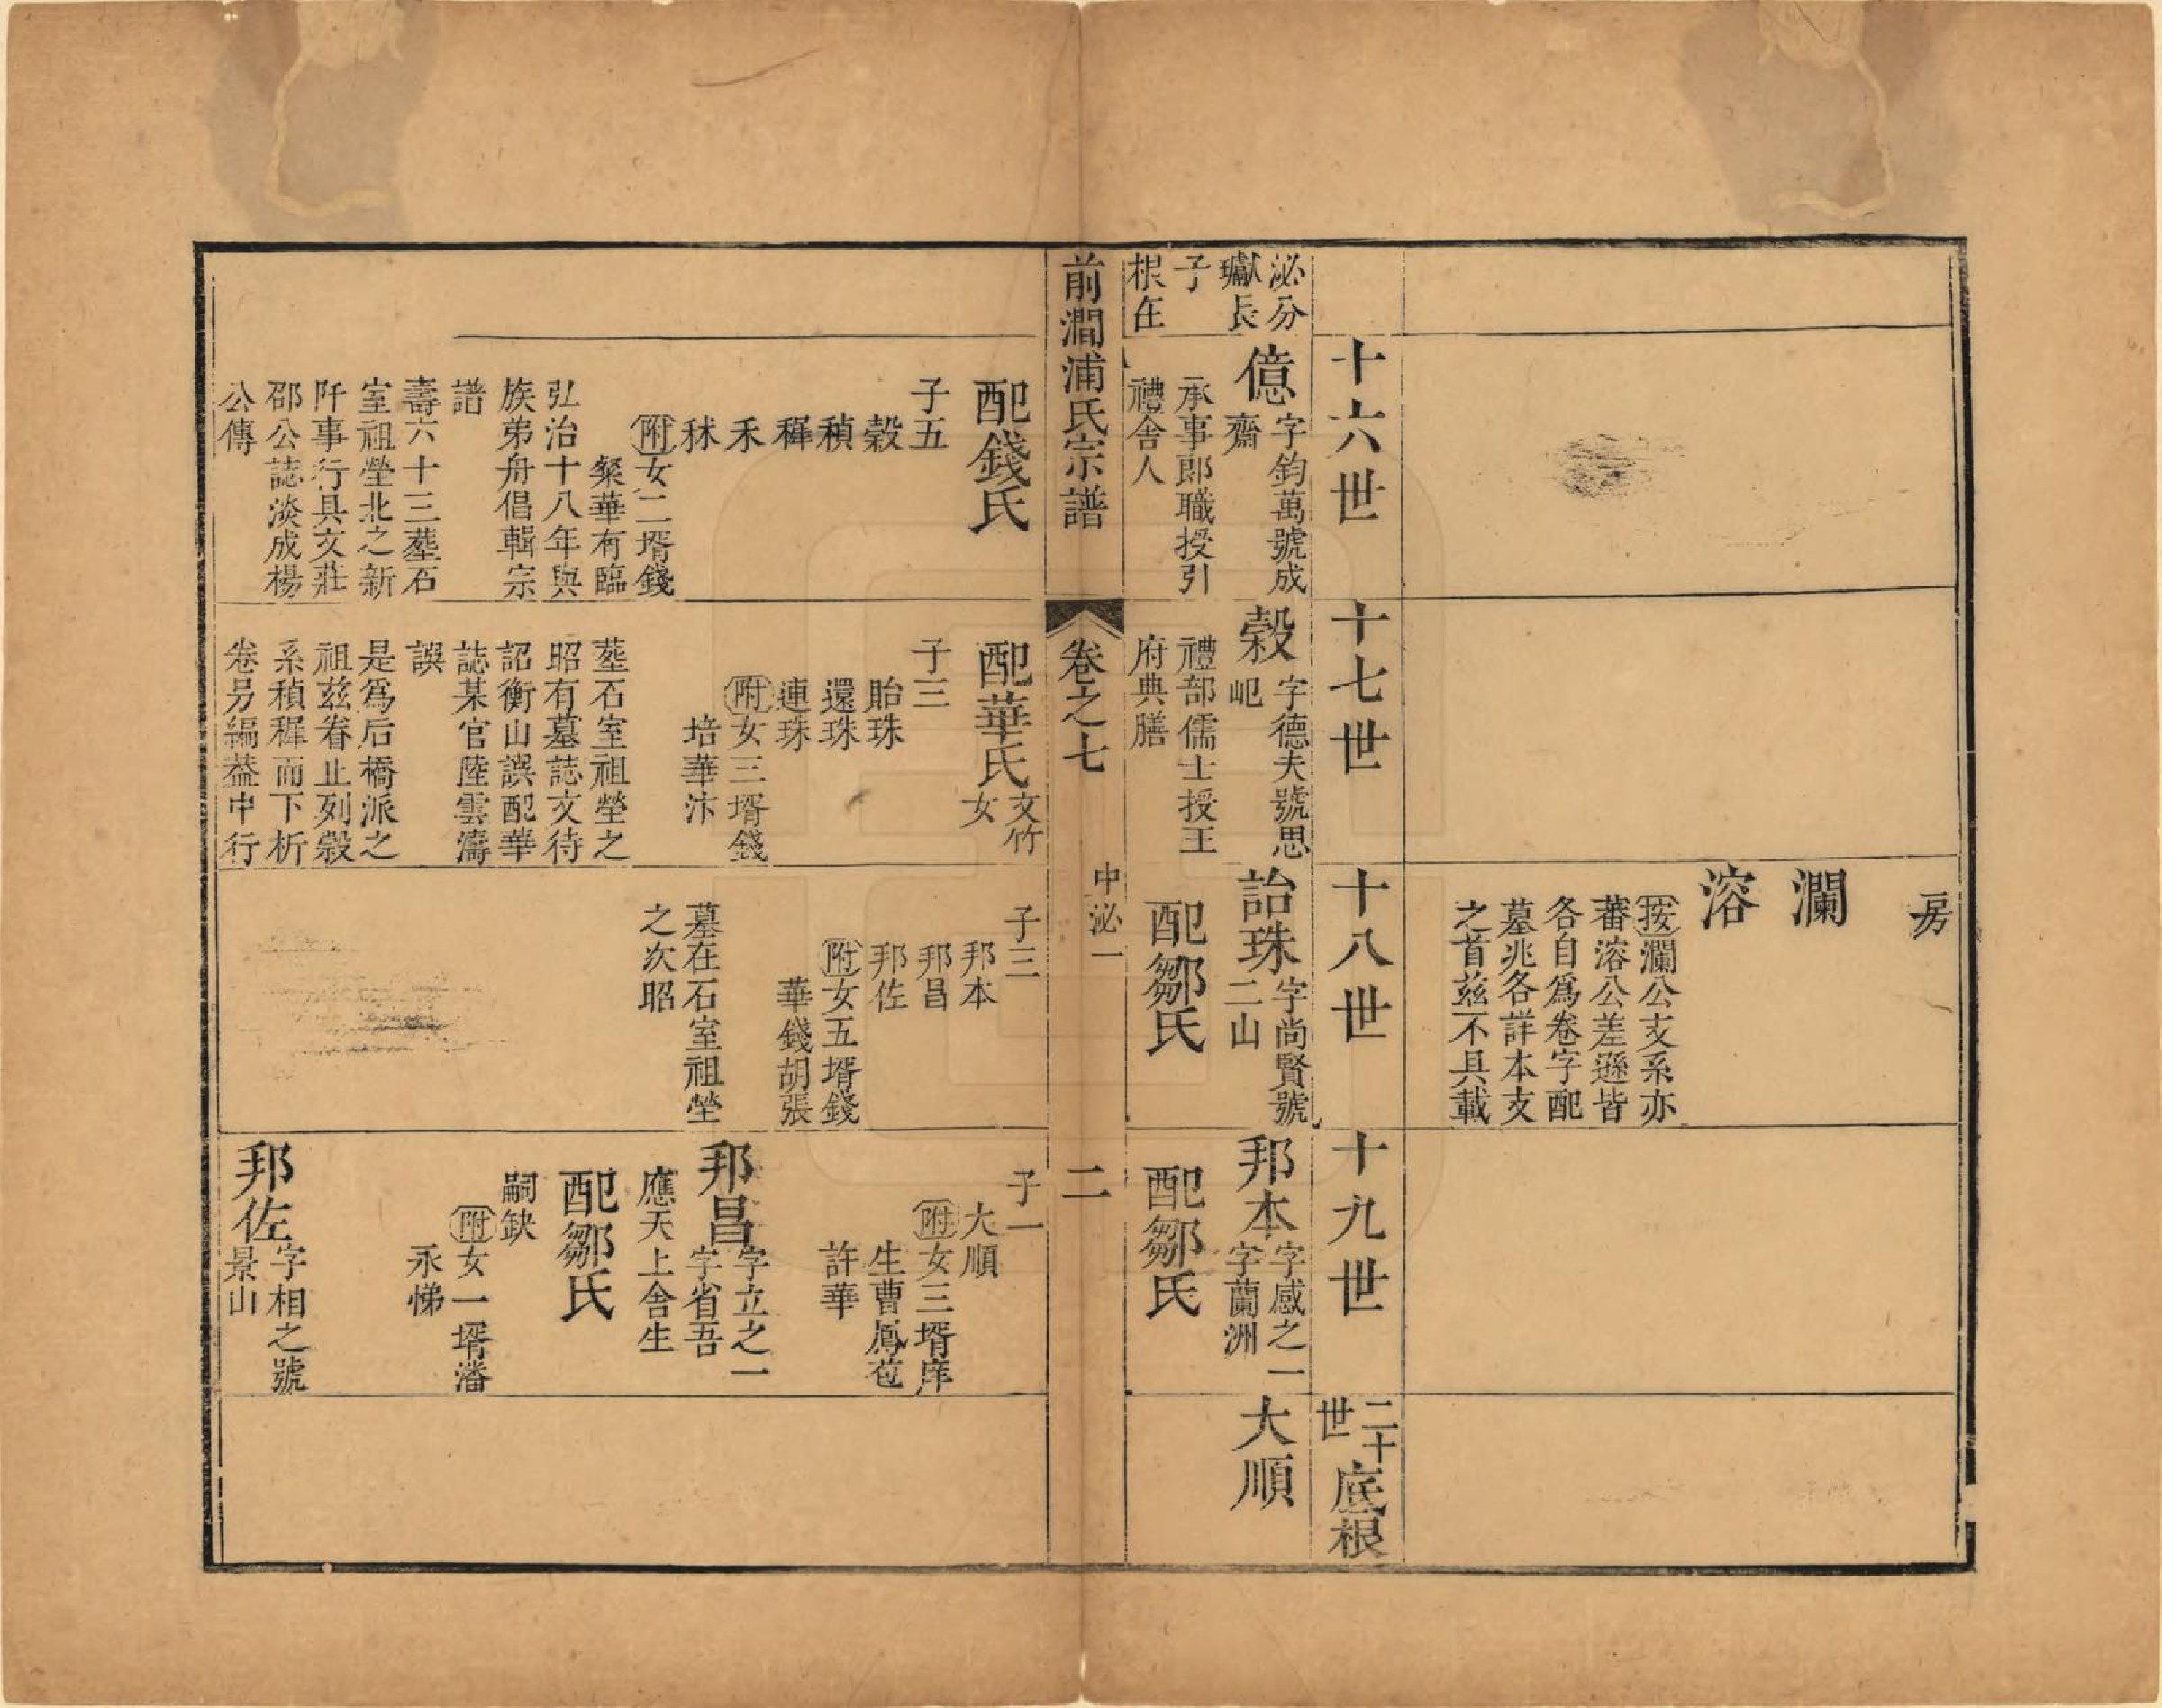 房
瀾
溶
按瀾公支系亦
蕃溶公差遜皆
各自爲卷字配
墓兆各詳本支
之首茲不具載
十六世
十七世
十八世
十九世
二十世
底根
泌分
瓛長
子
根在
億
字鈞萬號成
齋
承事郎職授引
禮舍人
榖
字德夫號思
屺
禮部儒士授王
府典膳
詒珠
字尚賢號
二山
配鄒氏
邦本
字感之一
字蘭洲
配鄒氏
大順
前澗浦氏宗譜
卷之七
中泌一
二
配錢氏
子五
榖
積
穉
禾
秫
附女二壻錢
粲華有臨
弘治十八年與
族弟舟倡輯宗
譜
壽六十三葬石
室祖塋北之新
阡事行具文莊
邵公誌淡成楊
公傳
配華氏
文竹
女
子三
貽珠
還珠
連珠
附女三壻錢
培華汴
葬石室祖塋之
昭有墓誌文待
詔衡山誤配華
誌某官陸雲濤
誤
是爲后橋派之
祖茲眷止列榖
系積穉而下析
卷另編葢中行
子三
邦本
邦昌
邦佐
附女五壻錢
華錢胡張
墓在石室祖塋
之次昭
子一
大順
附女三壻庠
生曹鳳苞
許華
邦昌
字立之一
字省吾
應天上舍生
配鄒氏
嗣缺
附女一壻潘
永悌
邦佐
字相之號
景山